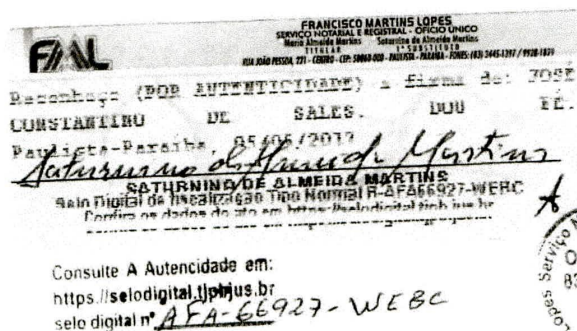 FML
FRANCISCO MARTINS LOPES
SERVIÇO NOTARIAL E REGISTRAL - OFÍCIO ÚNICO
Maria Almeida Martins Saturnino de Almeida Martins
TITULAR 1º SUBSTITUTO
RUA JOÃO PESSOA, 221 - CENTRO - CEP: 58860-000 - PAULISTA - PARAÍBA - FONES: (83) 3445-1397 / 9928-1839
Reconheço (POR AUTENTICIDADE) a firma de: JOSÉ
CONSTANTINO DE SALES. DOU FÉ.
Paulista-Paraíba, 05/06/2017
Saturnino de Almeida Martins
SATURNINO DE ALMEIDA MARTINS
Selo Digital de fiscalização Tipo Normal B-AFA66927-WEBC
Confira os dados do ato em https://selodigital.tjpb.jus.br
Consulte A Autencidade em:
https://selodigital.tjpbjus.br
selo digital nº AFA-66927-WEBC
opes Serviço